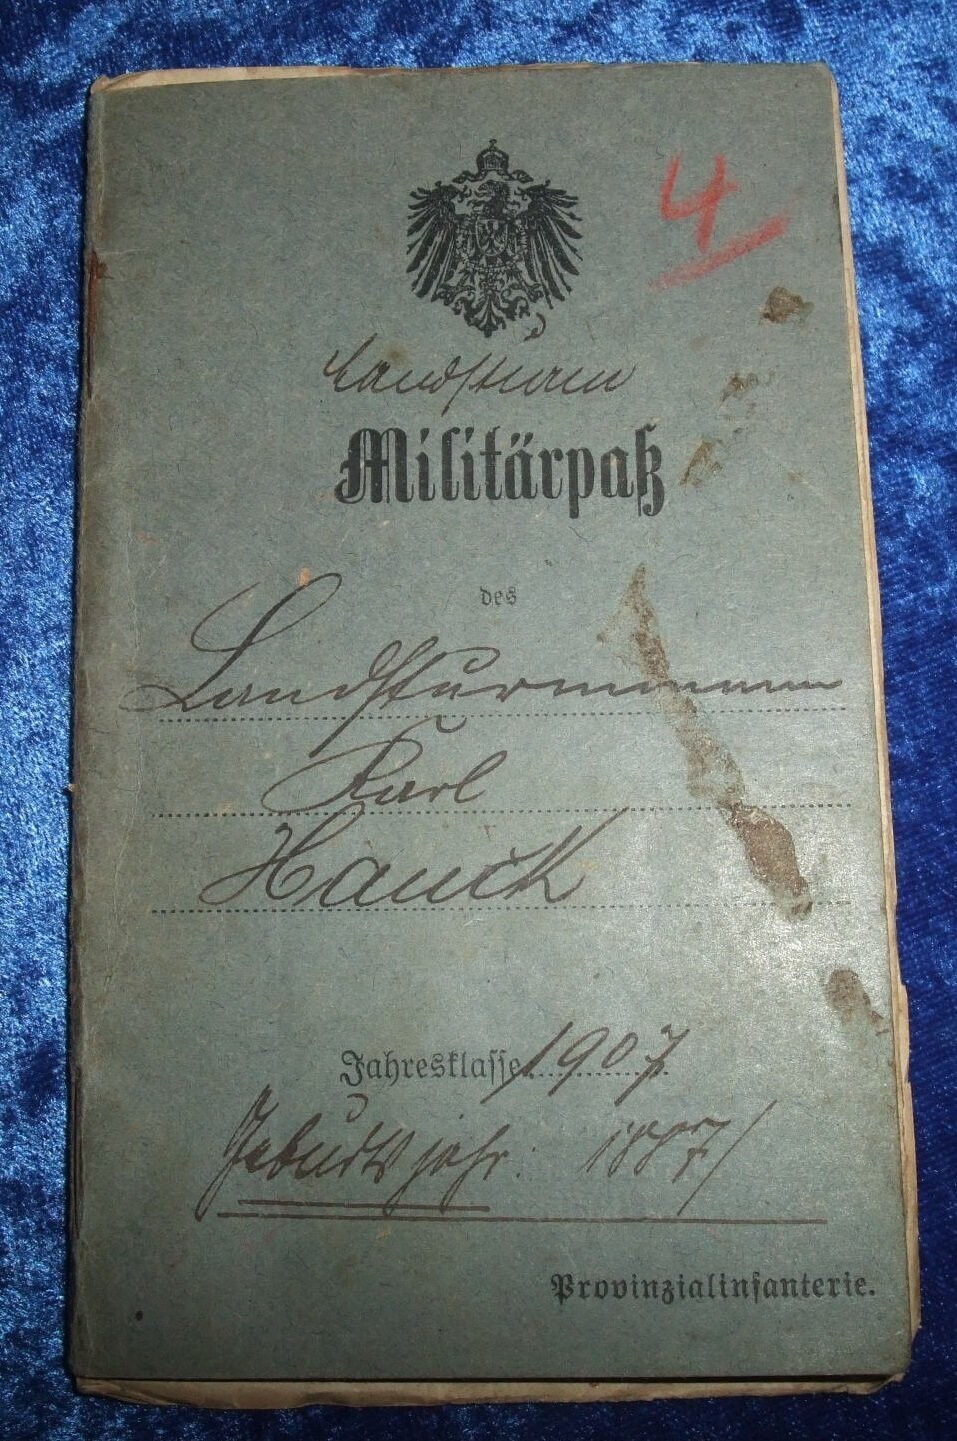 4
Landsturm
Militärpaß
des
Landsturmmann
Karl
Hauck
Jahresklasse 1907
Geburtsjahr: 1887
Provinzialinfanterie.